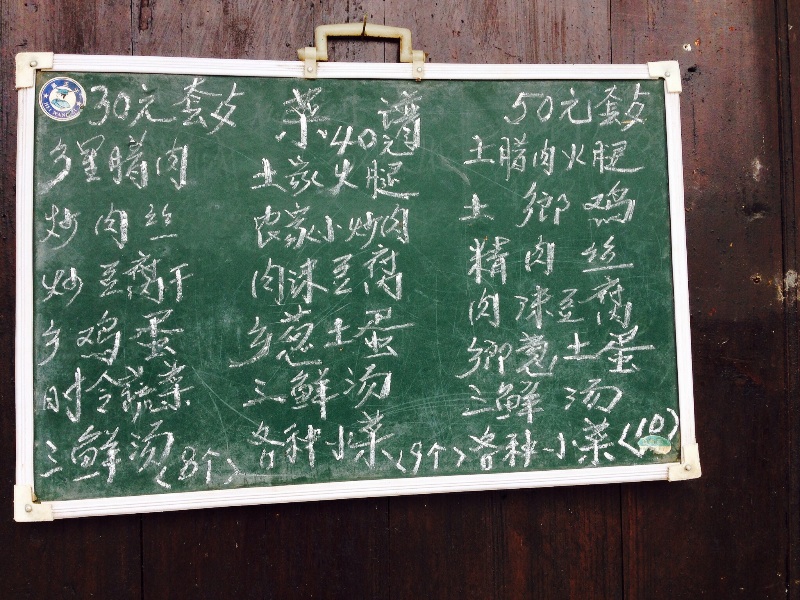 菜谱
30元套歺
乡里腊肉
炒肉丝
炒豆腐干
乡鸡蛋
时令蔬菜
三鲜汤(8个)
40元
土家火腿
农家小炒肉
肉沫豆腐
乡葱土蛋
三鲜汤
各种小菜(9个)
50元套歺
土腊肉火腿
土鄉鸡
精肉丝
肉沫豆腐
鄉葱土蛋
三鲜汤
各种小菜(10)